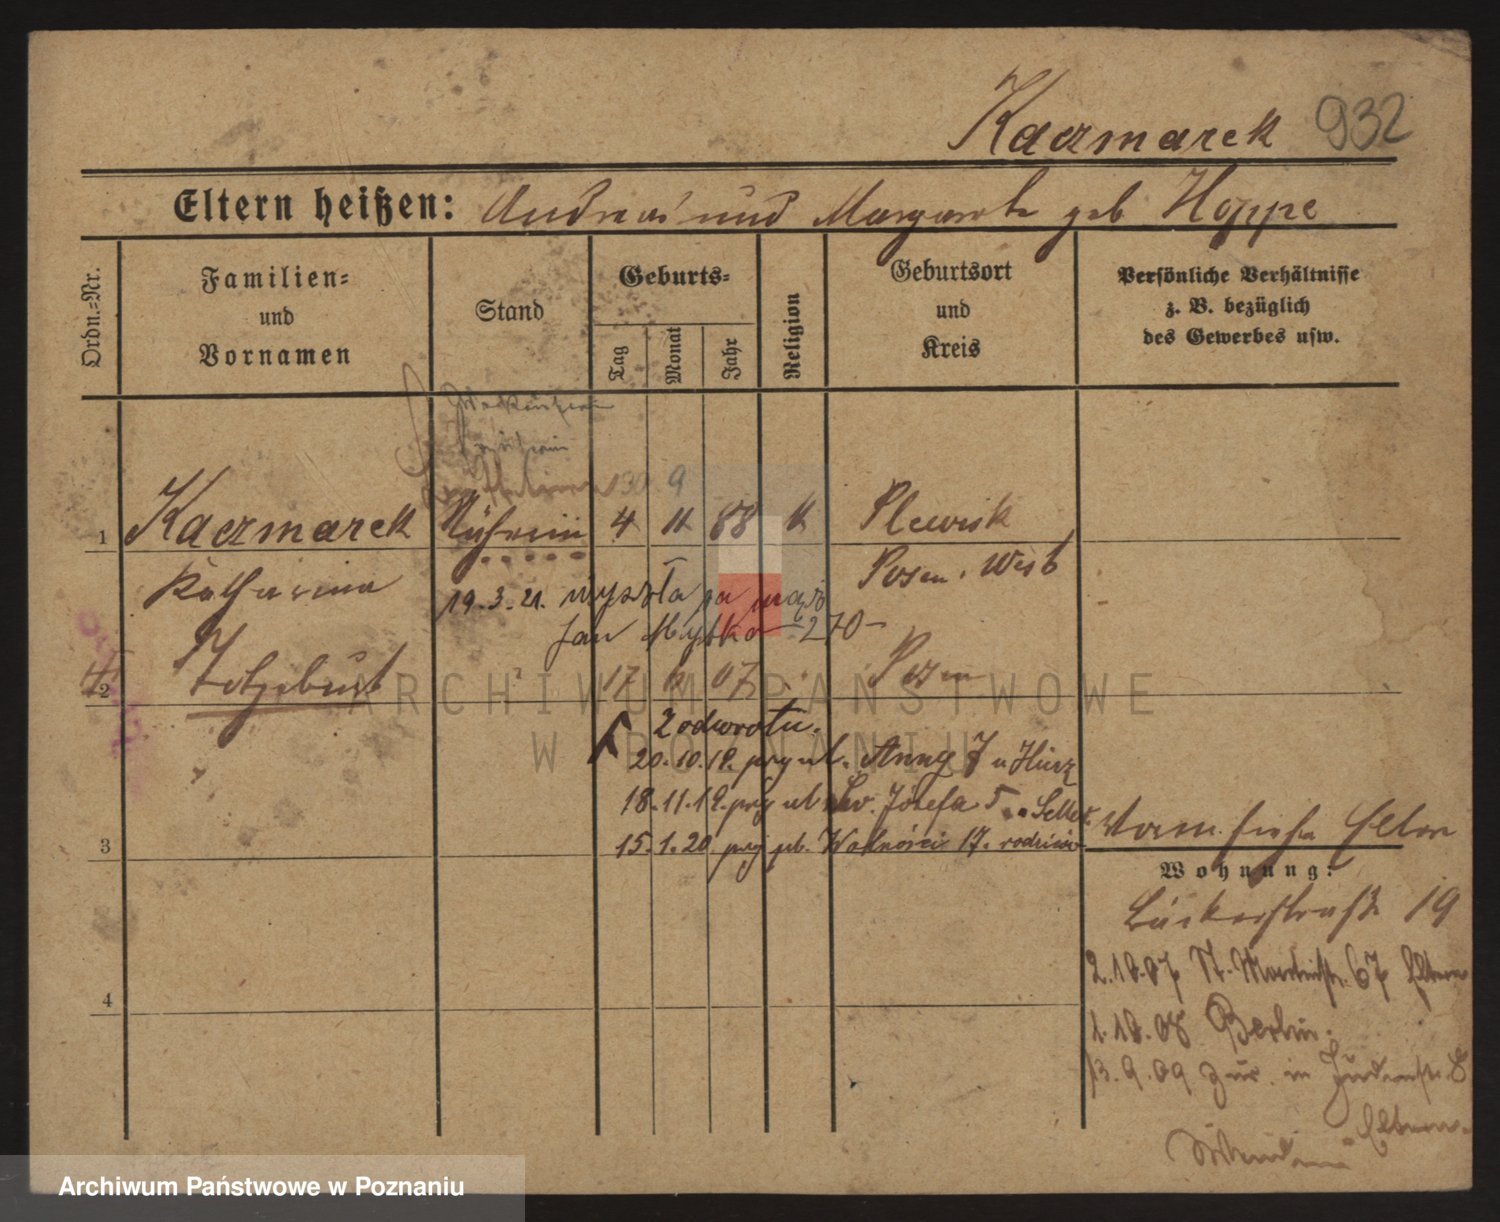 Kaczmarek 932
Eltern heißen: Andreas und Margareth geb Hoppe
Ordn.-Nr.
Familien-
und
Vornamen
Stand
Geburts-
Tag
Monat
Jahr
Religion
Geburtsort
und
Kreis
Persönliche Verhältnisse
z. B. bezüglich
des Gewerbes usw.
30 9
1 Kaczmarek Näherin 4 11 88 k Plewisk
Katharina Posen West
19.3.21. wyszła za mąż
Jan 270-
2 Totgeburt 17 6 07 Posen
Z odwrotu.
20.10.19. prz ul. Anny 7 u
18.11.19. prz ul Św. Józefa 5
15.1.20 prz pl. Wolności 17. rodziców
3
4
Vorm. siehe Eltern
Wohnung:
Bäckerstraße 19
2.10.07 St. Martinstr. 67 Eltern
1.10.08 Berlin.
13.9.09 zur. in Judenstr. 8
Eltern
ARCHIWUM PAŃSTWOWE
W POZNANIU
Archiwum Państwowe w Poznaniu